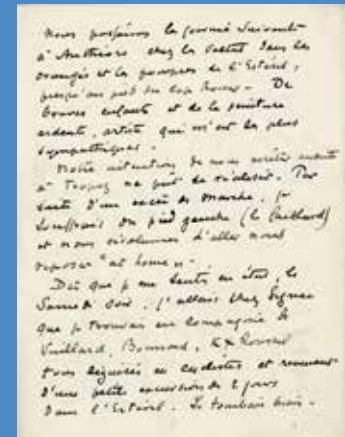 Nous passâmes la journée suivante
à Anthéore chez les Valtat dans les
orangés et les pourpres de l'Estérel,
presqu'au pied du Cap Roux. De
braves enfants et de la peinture
ardente, artiste qui m'est des plus
sympathiques.
Notre intention de nous arrêter ensuite
à Tropez ne put se réaliser. Par
suite d'un excès de marche, je
souffrais du pied gauche (le gaillard)
et nous résolûmes d'aller nous
reposer "at home".
Dès que je me sentis en état, le
Samedi soir, j'allais chez Signac
que je trouvai en compagnie de
Vuillard, Bonnard, KX Roussel
tous déguisés en cyclistes et revenant
d'une petite excursion de 2 jours
dans l'Estérel. Je tombais bien.